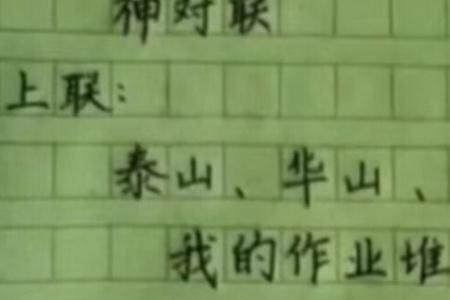 神对联
上联:
泰山、华山、
我的作业堆